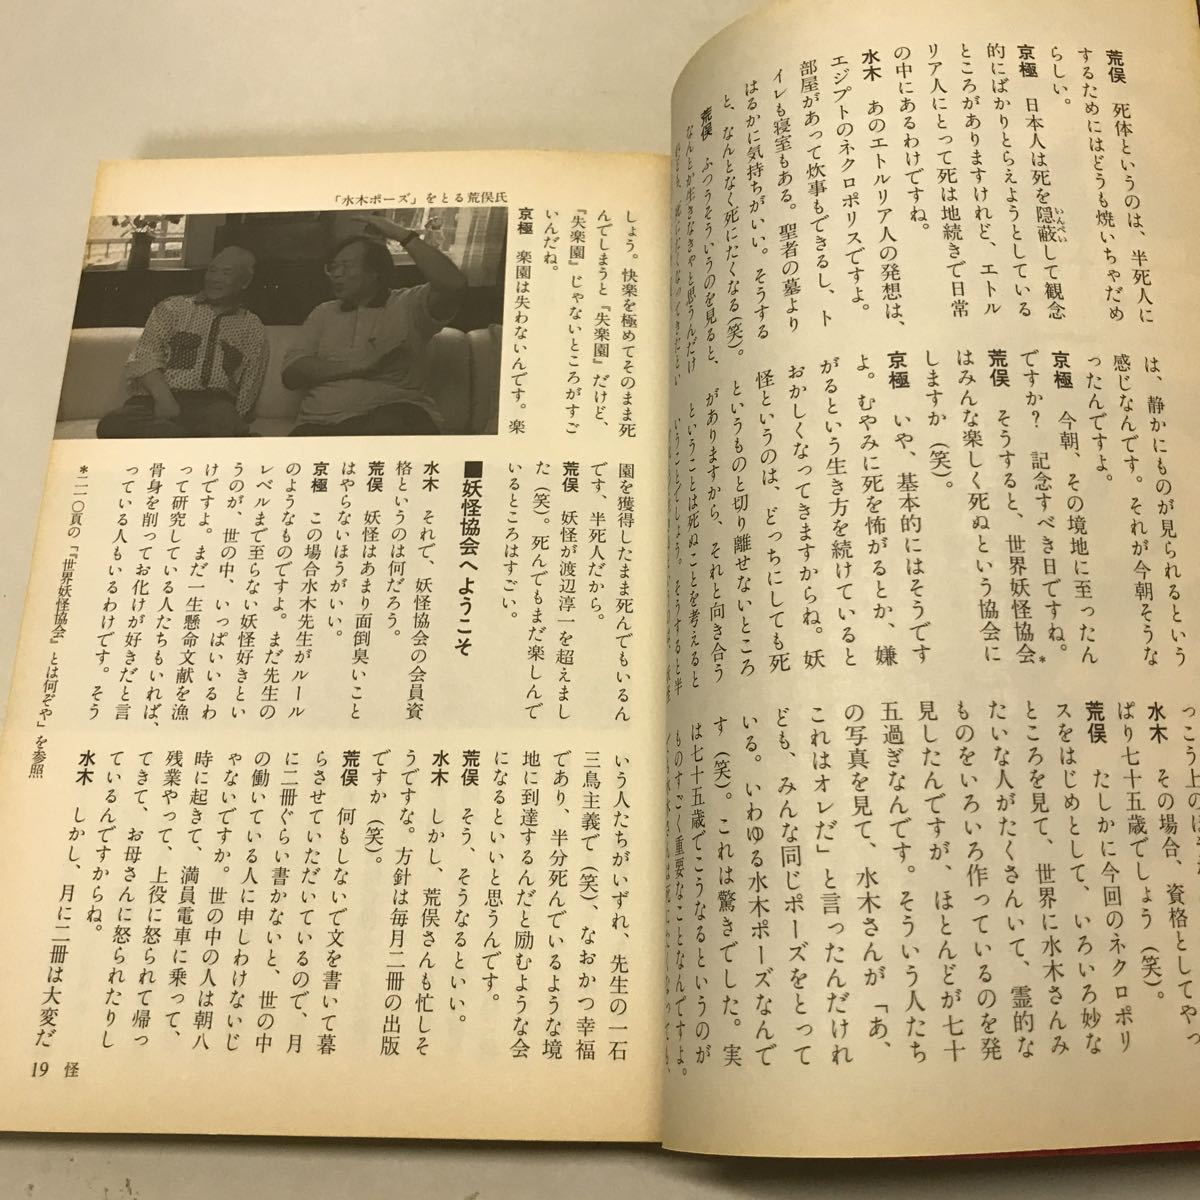 荒俣　死体というのは、半死人に
するためにはどうも焼いちゃだめ
らしい。
京極　日本人は死を隠蔽して観念
いんぺい
的にばかりとらえようとしている
ところがありますけれど、エトル
リア人にとって死は地続きで日常
の中にあるわけですね。
水木　あのエトルリア人の発想は、
エジプトのネクロポリスですよ。
部屋があって炊事もできるし、ト
イレも寝室もある。聖者の墓より
はるかに気持ちがいい。そうする
と、なんとなく死にたくなる（笑）。
荒俣　ふつうそういうのを見ると、
なんとか生きなきゃと思うんだけ
は、静かにものが見られるという
感じなんです。それが今朝そうな
ったんですよ。
京極　今朝、その境地に至ったん
ですか？　記念すべき日ですね。
荒俣　そうすると、世界妖怪協会*
はみんな楽しく死ぬという協会に
しますか（笑）。
京極　いや、基本的にはそうです
よ。むやみに死を怖がるとか、嫌
がるという生き方を続けていると
おかしくなってきますからね。妖
怪というのは、どっちにしても死
というものと切り離せないところ
がありますから、それと向き合う
ということは死ぬことを考えると
いうことでしょう。そうすると半
水木　その場合、資格としてやっ
ぱり七十五歳でしょう（笑）。
荒俣　たしかに今回のネクロポリ
スをはじめとして、いろいろ妙な
ところを見て、世界に水木さんみ
たいな人がたくさんいて、霊的な
ものをいろいろ作っているのを発
見したんですが、ほとんどが七十
五過ぎなんです。そういう人たち
の写真を見て、水木さんが「あ、
これはオレだ」と言ったんだけれ
ども、みんな同じポーズをとって
いる。いわゆる水木ポーズなんで
す（笑）。これは驚きでした。実
は七十五歳でこうなるというのが
ものすごく重要なことなんですよ。
「水木ポーズ」をとる荒俣氏
しょう。快楽を極めてそのまま死
んでしまうと『失楽園』だけど、
『失楽園』じゃないところがすご
いんだね。
京極　楽園は失わないんです。楽
園を獲得したまま死んでもいるん
です、半死人だから。
荒俣　妖怪が渡辺淳一を超えまし
た（笑）。死んでもまだ楽しんで
いるところはすごい。
■妖怪協会へようこそ
水木　それで、妖怪協会の会員資
格というのは何だろう。
荒俣　妖怪はあまり面倒臭いこと
はやらないほうがいい。
京極　この場合水木先生がルール
のようなものですよ。まだ先生の
レベルまで至らない妖怪好きとい
うのが、世の中、いっぱいいるわ
けですよ。まだ一生懸命文献を漁
って研究している人たちもいれば、
骨身を削ってお化けが好きだと言
っている人もいるわけです。そう
いう人たちがいずれ、先生の一石
三鳥主義で（笑）、なおかつ幸福
であり、半分死んでいるような境
地に到達するんだと励むような会
になるといいと思うんです。
荒俣　そう、そうなるといい。
水木　しかし、荒俣さんも忙しそ
うですな。方針は毎月二冊の出版
ですか（笑）。
荒俣　何もしないで文を書いて暮
らさせていただいているので、月
に二冊ぐらい書かないと、世の中
の働いている人に申しわけないじ
ゃないですか。世の中の人は朝八
時に起きて、満員電車に乗って、
残業やって、上役に怒られて帰っ
てきて、お母さんに怒られたりし
ているんですからね。
水木　しかし、月に二冊は大変だ
*二一〇頁の「『世界妖怪協会』とは何ぞや」を参照
19　怪